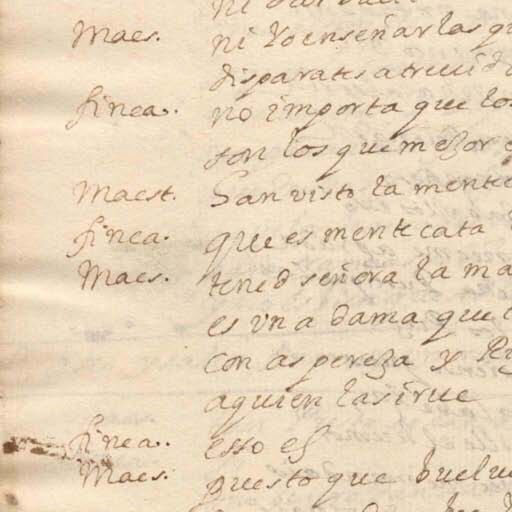 Maes. ni lo enseñar las q
disparates atreuid
finea. no importa que los
son los que mejor
Maest. San visto la mente
finea. que es mentecata
Maes. tened señora la ma
es vna dama que
con aspereza y Ri
a quien la sirue
finea. esso es
Maes. puesto que buelu